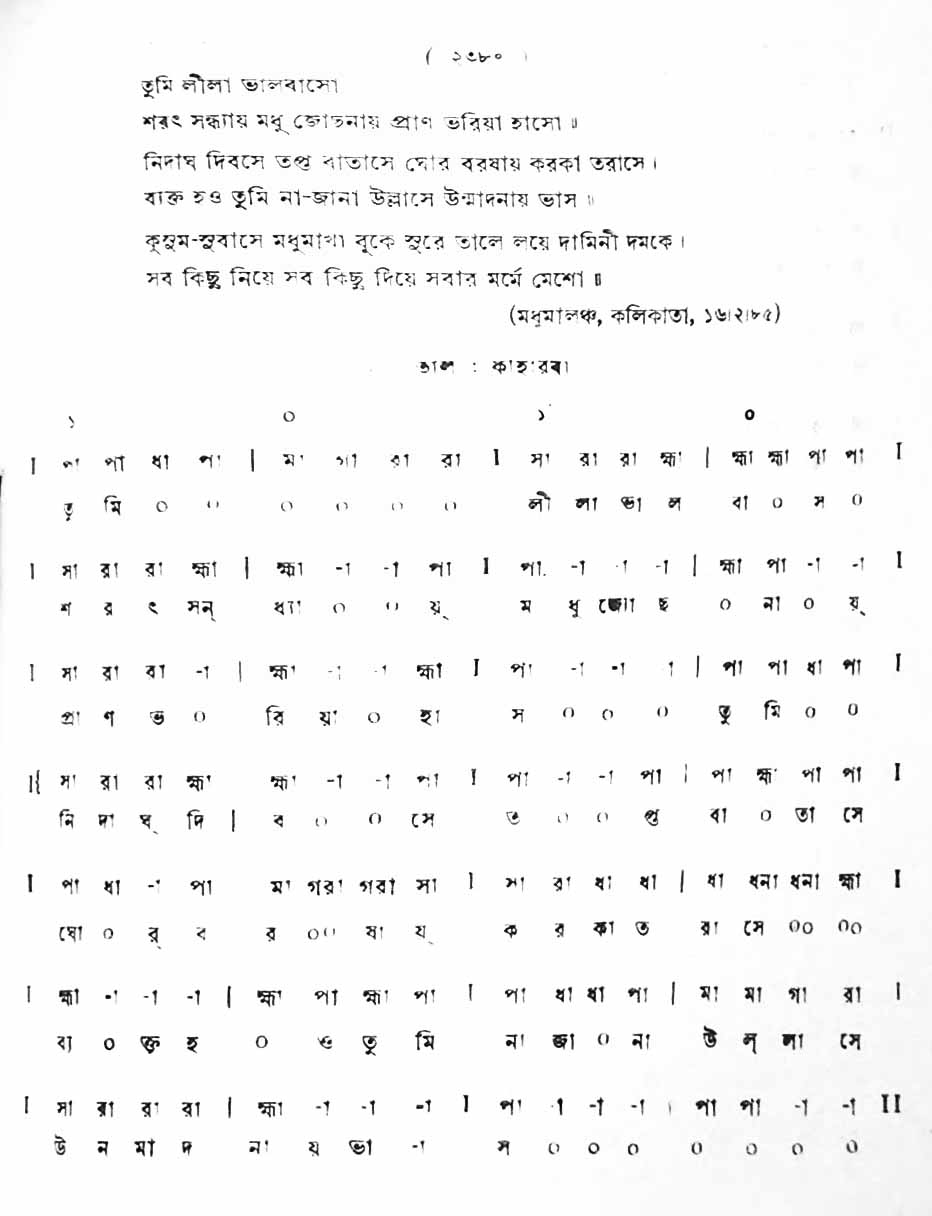 ( ২৩৮০ )
তুমি লীলা ভালবাসো
শরৎ সন্ধ্যায় মধু জোছনায় প্রাণ ভরিয়া হাসো ॥
নিদাঘ দিবসে তপ্ত বাতাসে ঘোর বরষায় করকা তরাসে ।
ব্যক্ত হও তুমি না-জানা উল্লাসে উন্মাদনায় ভাস ॥
কুসুম-সুবাসে মধুমাখা বুকে সুরে তালে লয়ে দামিনী দমকে ।
সব কিছু নিয়ে সব কিছু দিয়ে সবার মর্মে মেশো ॥
(মধুমালঞ্চ, কলিকাতা, ১৬।২।৮৫)
তাল : কাহারবা
১ ০ ১ ০
I পা পা ধা পা | মা গা রা রা I সা রা রা হ্মা | হ্মা হ্মা পা পা I
তু মি ০ ০ ০ ০ ০ ০ লী লা ভা ল বা ০ স ০
I সা রা রা হ্মা | হ্মা -া -া পা I পা -া -া -া | হ্মা পা -া -া I
শ র ৎ সন্ ধ্যা ০ ০ য়্ ম ধু জ্যো ছ ০ না ০ য়্
I সা রা রা -া | হ্মা -া -া হ্মা I পা -া -া -া | পা পা ধা পা I
প্রা ণ ভ ০ রি য়া ০ হা স ০ ০ ০ তু মি ০ ০
I{ সা রা রা হ্মা হ্মা -া -া পা I পা -া -া পা | পা হ্ম পা পা I
নি দা ঘ্ দি | ব ০ ০ সে ত ০ ০ প্ত বা ০ তা সে
I পা ধা -া পা মা গরা গরা সা I সা রা ধা ধা | ধা ধনা ধনা হ্মা I
ঘো ০ র্ ব র ০০ ষা য্ ক র কা ত রা সে ০০ ০০
I হ্মা -া -া -া | হ্মা পা হ্মা পা I পা ধা ধা পা | মা মা গা রা I
ব্য ০ ক্ত হ ০ ও তু মি না জা ০ না উ ল্ লা সে
I সা রা রা রা | হ্মা -া -া -া I পা -া -া -া | পা পা -া -া II
উ ন মা দ না য় ভা -া স ০ ০ ০ ০ ০ ০ ০